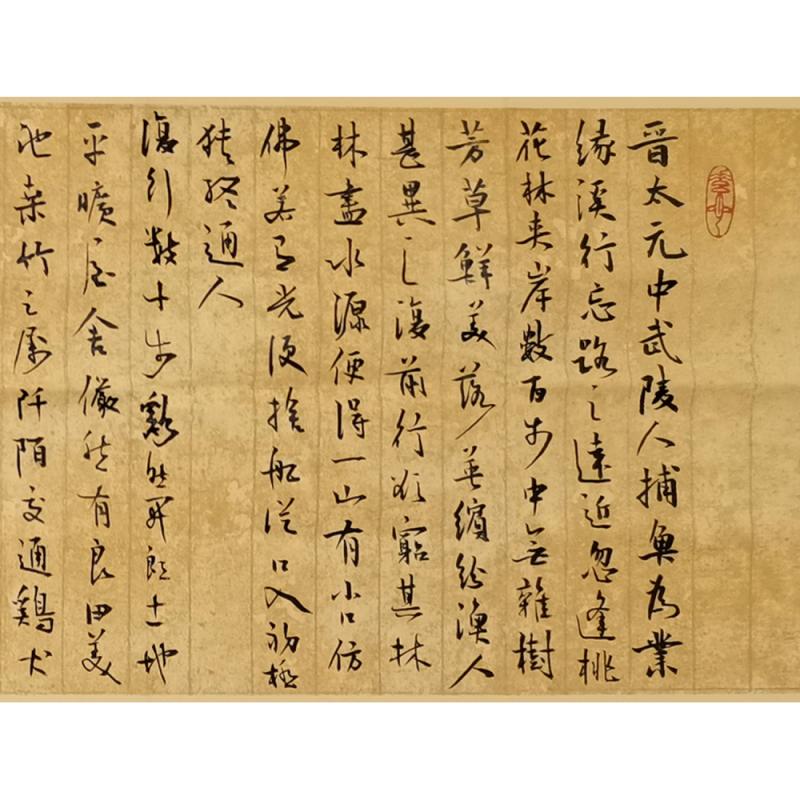 晉太元中武陵人捕魚為業
緣溪行忘路之遠近忽逢桃
花林夾岸數百步中無雜樹
芳草鮮美落英繽紛漁人
甚異之復前行欲窮其林
林盡水源便得一山有小口仿
佛若有光便捨船從口入初極
狹纔通人
復行數十步豁然開朗土地
平曠屋舍儼然有良田美
池桑竹之屬阡陌交通鷄犬